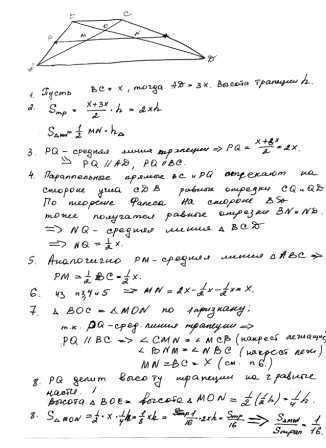 B C
O
P M N
A D
1. Пусть BC = x, тогда AD = 3x. Высота трапеции h.
2. Sтр = (x+3x)/2 · h = 2xh
SΔMON = 1/2 MN · hΔ
3. PQ - средняя линия трапеции ⇒ PQ = (x+3x)/2 = 2x.
⇒ PQ ∥ AD, PQ ∥ BC.
4. Параллельные прямые BC и PQ отсекают на
стороне угла CDB равные отрезки CQ и QD
По теореме Фалеса на стороне BD
тоже получатся равные отрезки BN = ND.
⇒ NQ - средняя линия Δ BCD
⇒ NQ = 1/2 x.
5. Аналогично PM - средняя линия Δ ABC ⇒
PM = 1/2 BC = 1/2 x.
6. из п 3,4 и 5 ⇒ MN = 2x - 1/2 x - 1/2 x = x
7. Δ BOC = Δ MON по 1 признаку:
т.к. PQ - сред. линия трапеции ⇒
PQ ∥ BC ⇒ ∠ CMN = ∠ MCB (накрест лежащие)
∠ BNM = ∠ NBC (накрест леж.)
MN = BC = x (см. п 6.)
8. PQ делит высоту трапеции на 2 равные
части. /
Высота Δ BOC = высоте Δ MON = 1/2 (1/2 h) = 1/4 h.
8. SΔMON = 1/2 · x · 1/4 h = 1/8 xh = 1/16 · 2xh = Sтр/16 ⇒ SΔMON/Sтрап = 1/16.